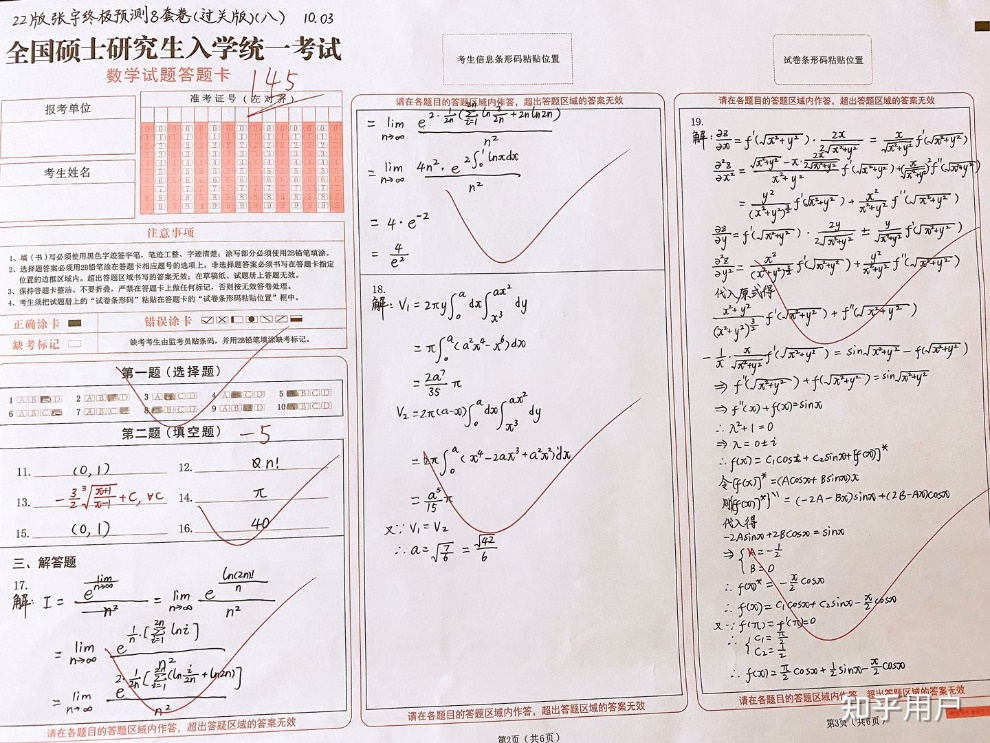 22版张宇终极预测8套卷(过关版)(八) 10.03
全国硕士研究生入学统一考试
数学试题答题卡
145
报考单位
准考证号(左对齐)
考生姓名
注意事项
1、填(书)写必须使用黑色字迹签字笔,笔迹工整、字迹清楚;涂写部分必须使用2B铅笔填涂。
2、选择题答案必须用2B铅笔涂在答题卡相应题号的选项上,非选择题答案必须书写在答题卡指定
位置的边框区域内。超出答题区域书写的答案无效;在草稿纸、试题册上答题无效。
3、保持答题卡整洁,不要折叠,严禁在答题卡上做任何标记,否则按无效答卷处理。
4、考生须把试题册上的“试卷条形码”粘贴在答题卡的“试卷条形码粘贴位置”框中。
正确涂卡
错误涂卡
缺考标记
缺考考生由监考员贴条码,并用2B铅笔填涂缺考标记。
第一题(选择题)
1 A B C D 2 A B C D 3 A B C D 4 A B C D 5 A B C D
6 A B C D 7 A B C D 8 A B C D 9 A B C D 10 A B C D
第二题(填空题) -5
11. (0,1) 12. 2n!
13. -3/2 ∛((x+1)/(x-1)) +C, ∀C 14. π
15. (0,1) 16. 40
三、解答题
17.
= lim n→∞ e^(1/n·[Σ_{i=1}^{2n} ln i]) / n²
= lim n→∞ e^(2·1/2n[Σ_{i=1}^{2n}(ln i/2n + ln2n)]) / n²
请在各题目的答题区域内作答,超出答题区域的答案无效
考生信息条形码粘贴位置
请在各题目的答题区域内作答,超出答题区域的答案无效
= lim n→∞ e^(2·1/2n(Σ_{i=1}^{2n} ln i/2n + 2n ln2n)) / n²
= lim n→∞ 4n²·e^(2∫₀¹lnxdx) / n²
= 4·e⁻²
= 4/e²
18.
解: V₁=2πy∫₀^a dx∫_{x³}^{ax²} dy
= π∫₀^a(a²x⁴-x⁶)dx
= 2a⁷/35 π
V₂=2π(a-x)∫₀^a dx∫_{x³}^{ax²} dy
= 2π∫₀^a(x⁴-2ax³+a²x²)dx
= a⁵/15 π
又∵V₁=V₂
∴a=√(7/6) = √42/6
请在各题目的答题区域内作答,超出答题区域的答案无效
第2页(共6页)
试卷条形码粘贴位置
请在各题目的答题区域内作答,超出答题区域的答案无效
19.
解: ∂z/∂x = f'(√(x²+y²))·2x/(2√(x²+y²)) = x/√(x²+y²) f'(√(x²+y²))
= y²/(x²+y²)^(3/2) f'(√(x²+y²)) + x²/(x²+y²) f''(√(x²+y²))
∂²z/∂y² = x²/(x²+y²)^(3/2) f'(√(x²+y²)) + y²/(x²+y²) f''(√(x²+y²))
代入原式得
(x²+y²)/(x²+y²)^(3/2) f'(√(x²+y²)) + f''(√(x²+y²))
-1/x·x/√(x²+y²) f'(√(x²+y²)) = sin√(x²+y²) - f(√(x²+y²))
⇒ f''(√(x²+y²)) + f(√(x²+y²)) = sin√(x²+y²)
⇒ f''(x)+f(x)=sinx
∴λ²+1=0
⇒λ=0±i
∴f(x)=C₁cosx+C₂sinx+[f(x)]*
令[f(x)]*=(Acosx+Bsinx)x
则[f(x)]*}''=(-2A-Bx)sinx+(2B-Ax)cosx
代入得
-2Asinx+2Bcosx=sinx
⇒{A=-1/2
B=0
∴f(x)*=-x/2 cosx
∴f(x)=C₁cosx+C₂sinx-x/2 cosx
又∵f(π)=f'(π)=0
∴{C₁=π/2
C₂=1/2
∴f(x)=π/2 cosx+1/2 sinx-x/2 cosx
请在各题目的答题区域内作答,超出答题区域的答案无效
第3页(共6页)
知乎用户